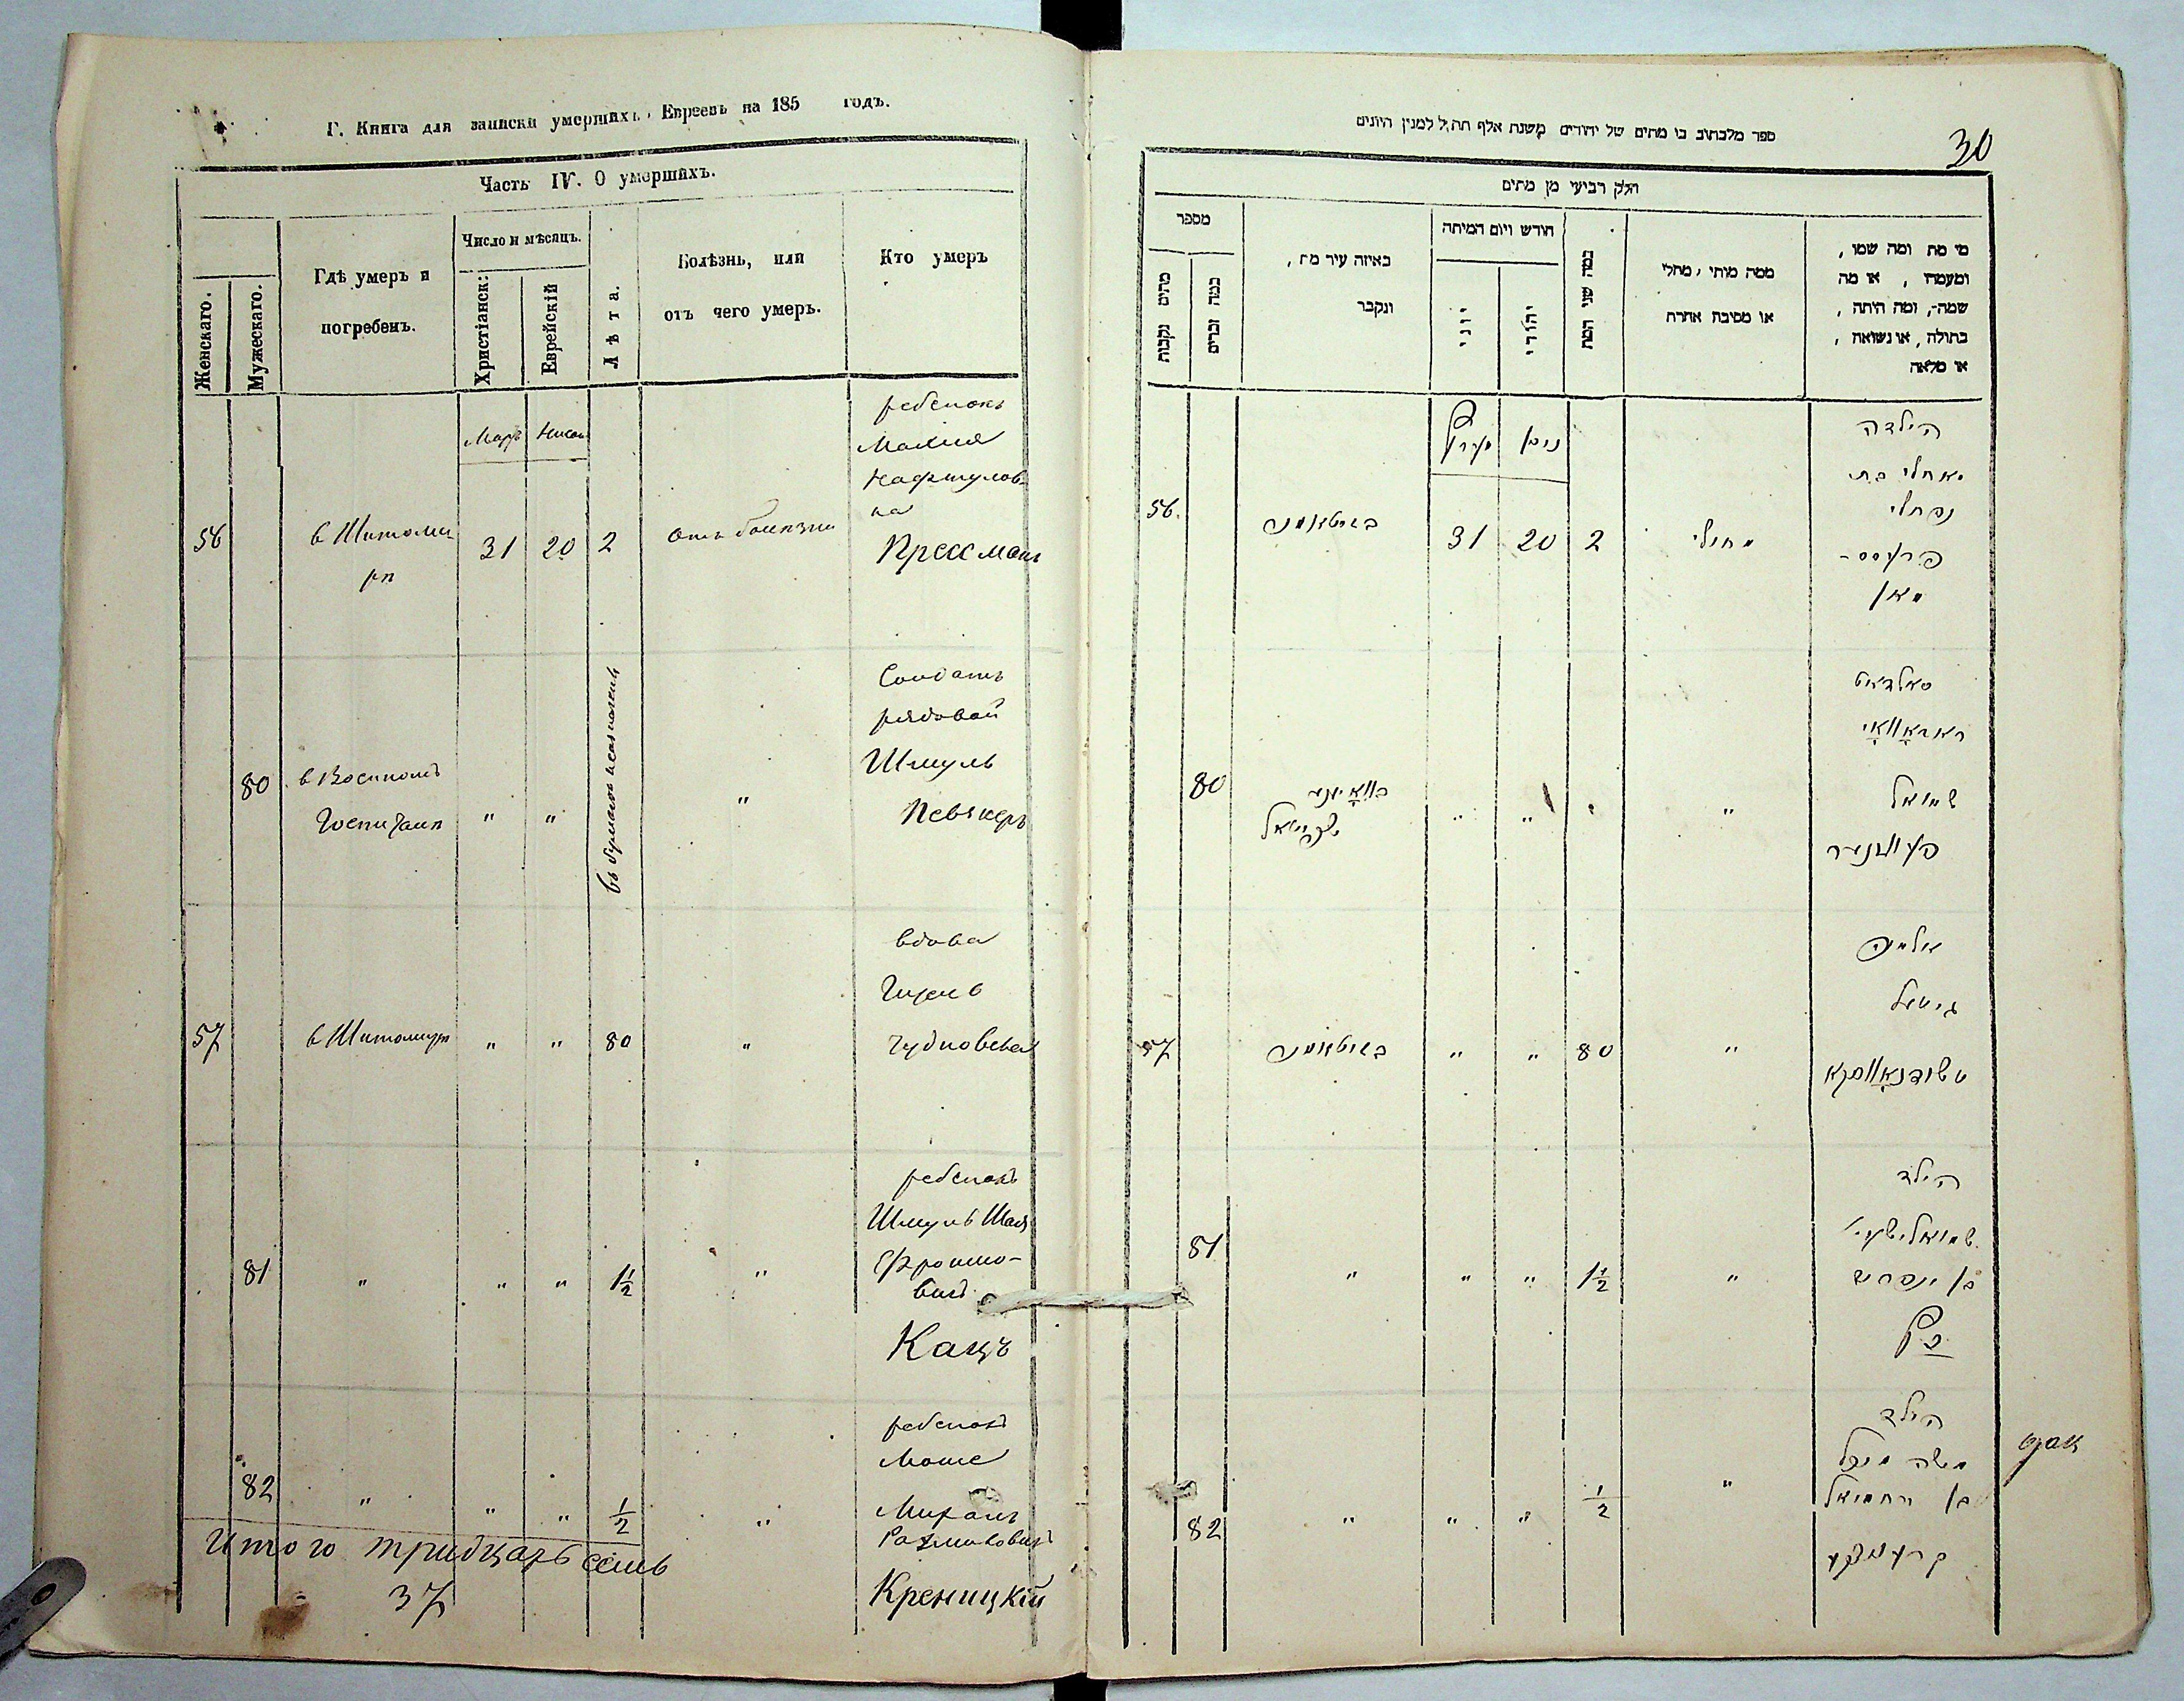 Г. Книга для записки умершихъ Евреевъ на 185 годъ.
Часть IV. О умершихъ.
Женскаго.
Мужескаго.
Гдѣ умеръ и
погребенъ.
Число и мѣсяцъ.
Христіанск:
Еврейскій
Лѣта.
Болѣзнь, или
отъ чего умеръ.
Кто умеръ
Мартъ Нисанъ
56
в Житоми
рѣ
31 20 2
отъ болѣзни
ребенокъ
Малия
Нафтулов-
на
Прессманъ
80
в Военномъ
Госпиталѣ
" "
"
Солдатъ
рядовой
Шмуль
Певзнеръ
57
в Житомирѣ
" " 80 "
вдова
Гитель
Чудновская
81
" " " 1½ "
ребенокъ
Шмуль Шая
Фроимо-
вичъ
Кацъ
82
" " " ½ "
ребенокъ
Моше
Михаль
Рахмиловичъ
Креницкій
Итого тридцать семь
37
ספר מלכתוב בו מתים של יהודים משנת אלף תת״ל למנין היונים
30
חלק רביעי מן מתים
מספר
מתים נקבות
כמה זכרים
באיזה עיר מת,
ונקבר
חודש ויום המיתה
יוני
יהודי
כמה שני המת
ממה מותו, מחלי
או מסיבה אחרת
מי מת ומה שמו,
ומעמדו, או מה
שמה, ומה היתה,
בתולה, או נשואה,
או אלמנה
ניסן
56
בזיטאמיר
31 20 2
מחולי
הילדה
מאחלי בת
נפתלי
פרעסס-
מאן
80
" " "
סאלדאט
ראדאָוואָי
שמואל
פעווזנער
57
בזיטאמיר
" " 80 "
אלמנה
גיטל
טשודנאָווסקא
81
" " " 1½ "
הילד
שמואל ישעי׳
בן אפרים
כץ
82
" " " ½ "
הילד
משה מיכל
בן ירחמיאל